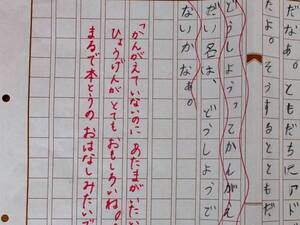 たよ。そうするとともだ
だなあ。ともだちにアド
どうしようってかんがえ
だい名は、どうしようで
ないかなぁ。
「かんがえていないのに あたまがいたい
ひょうげんが とても、おもしろいね。
まるで本とうの おはなしみたいで